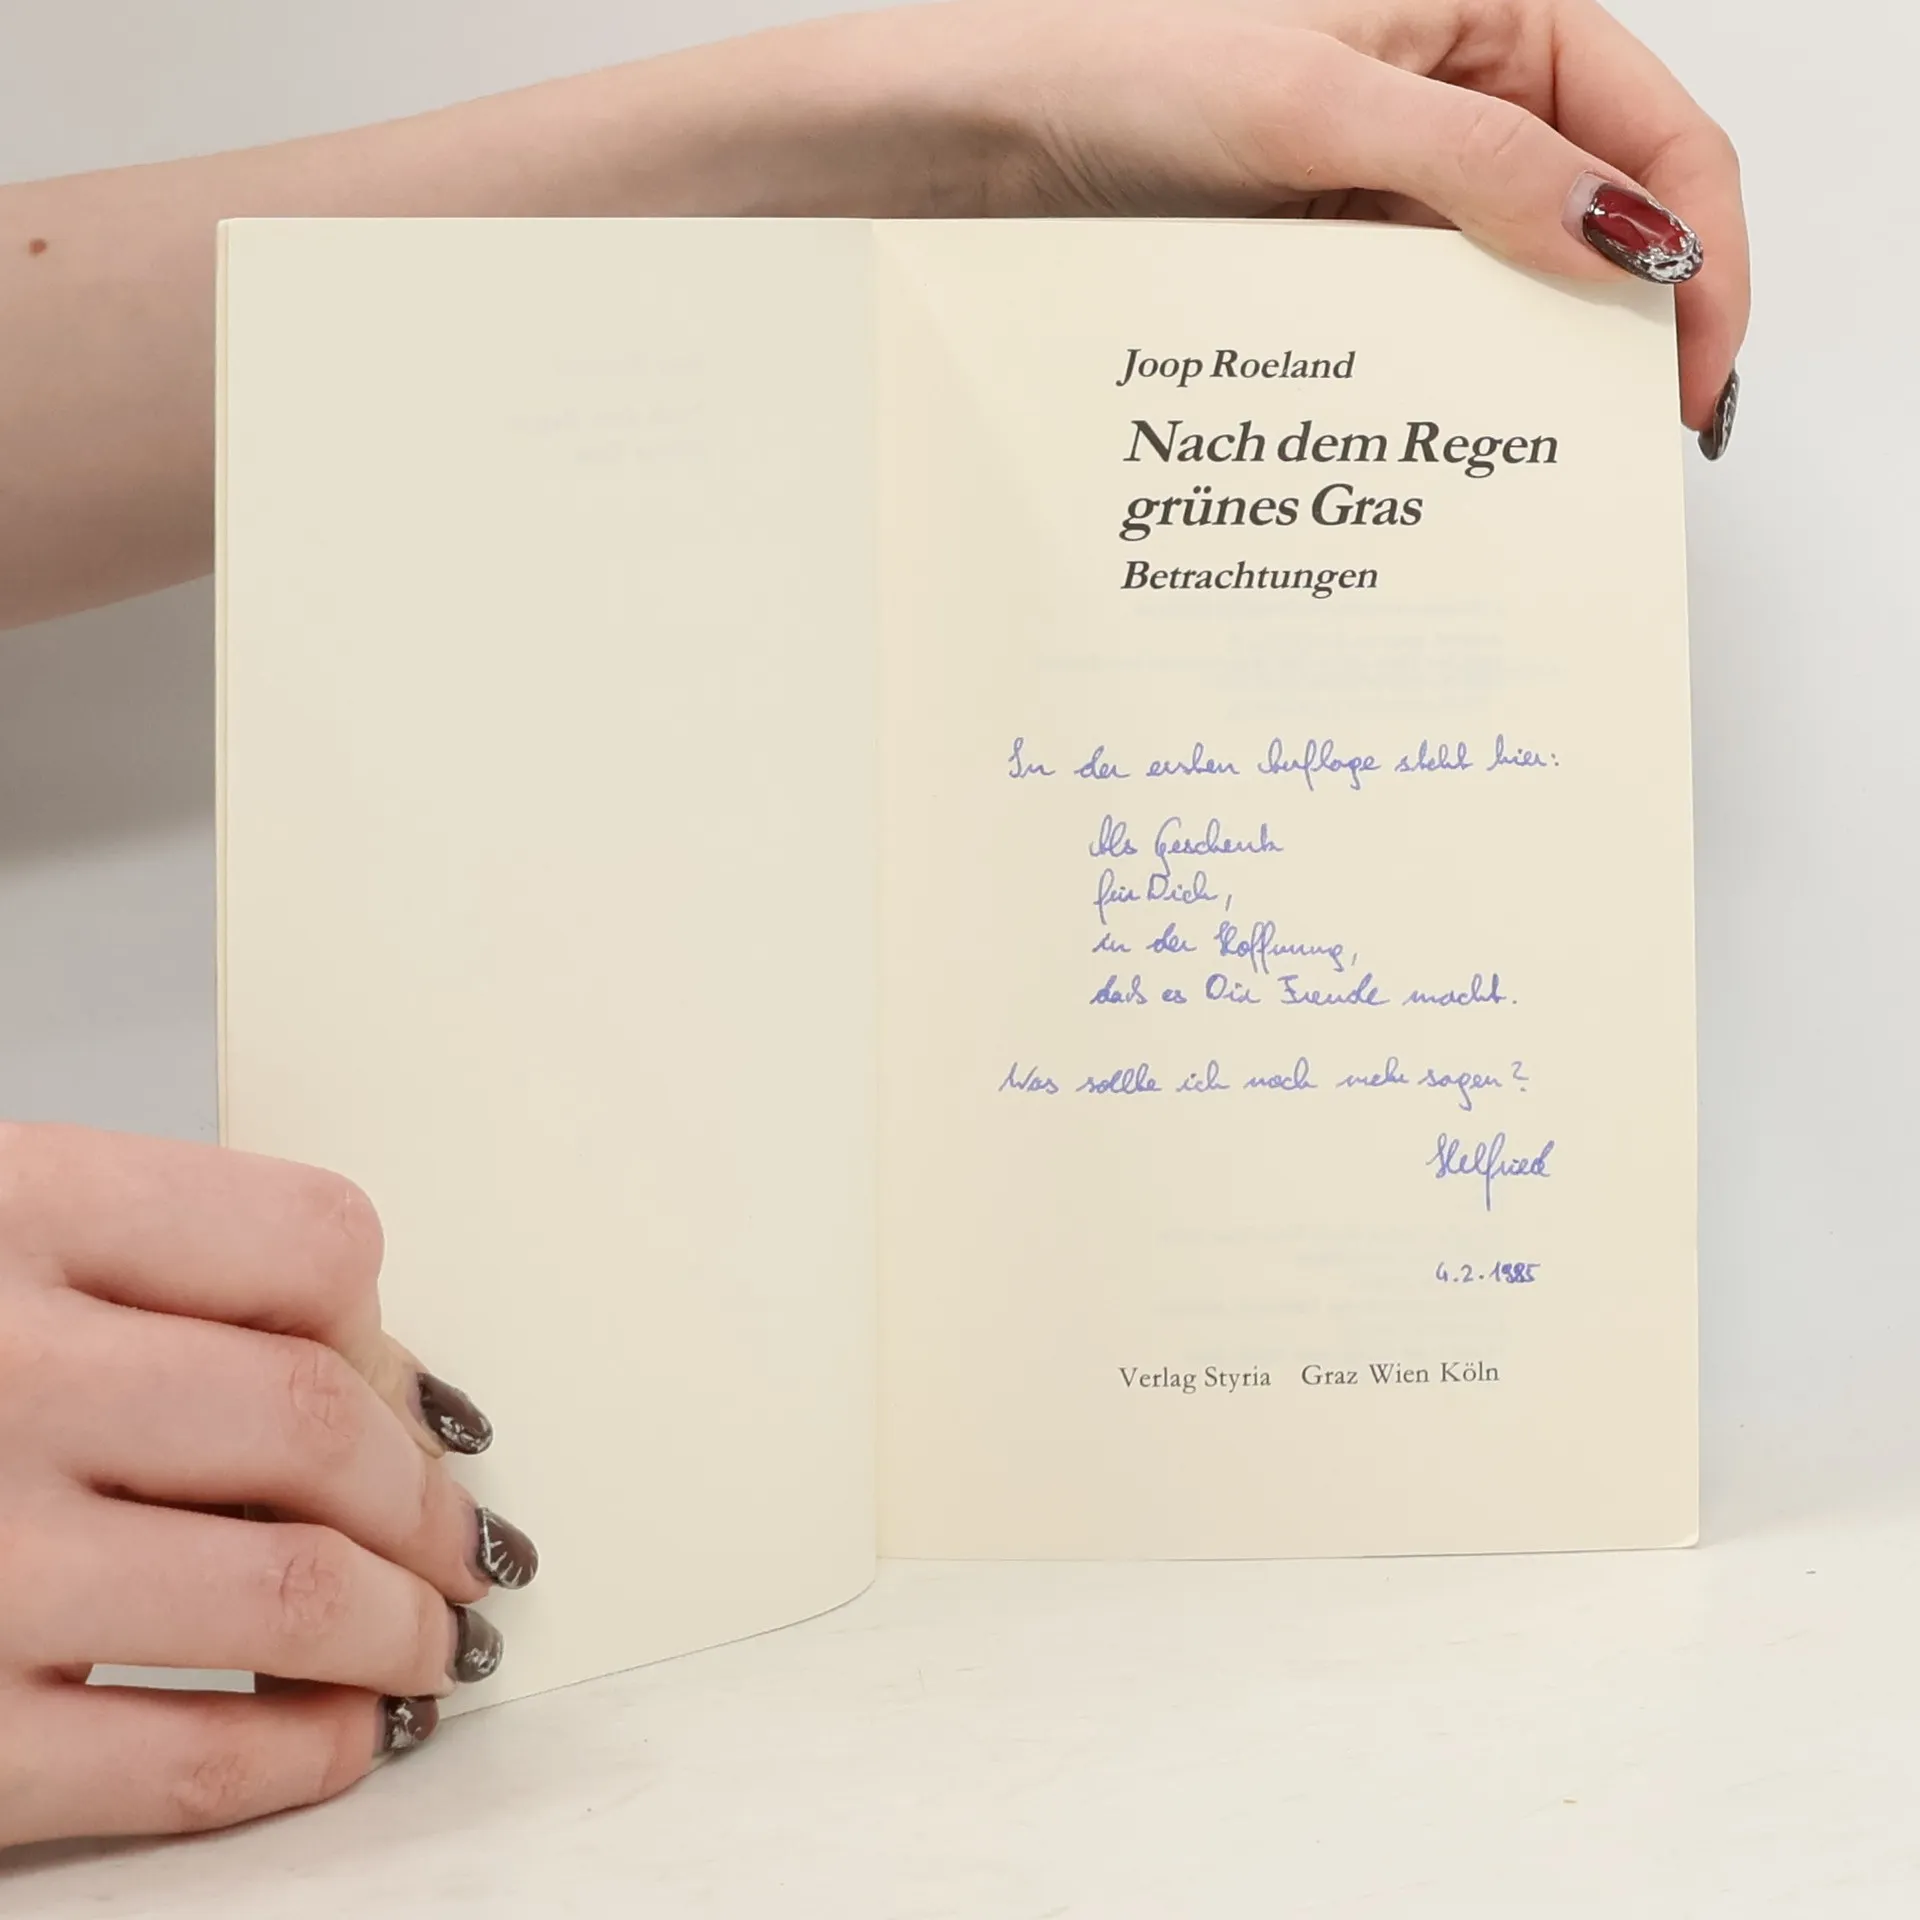 Joop Roeland
Nach dem Regen
grünes Gras
Betrachtungen
In der ersten Auflage steht hier:
Als Geschenk
für Dich,
in der Hoffnung,
daß es Dir Freude macht.
Was sollte ich noch mehr sagen?
Helfried
4.2.1985
Verlag Styria Graz Wien Köln